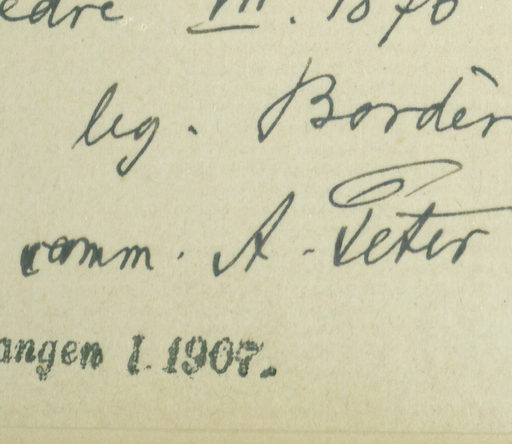 edre III. 1870
leg. Bordèr
comm. A. Peter
angen I. 1907.